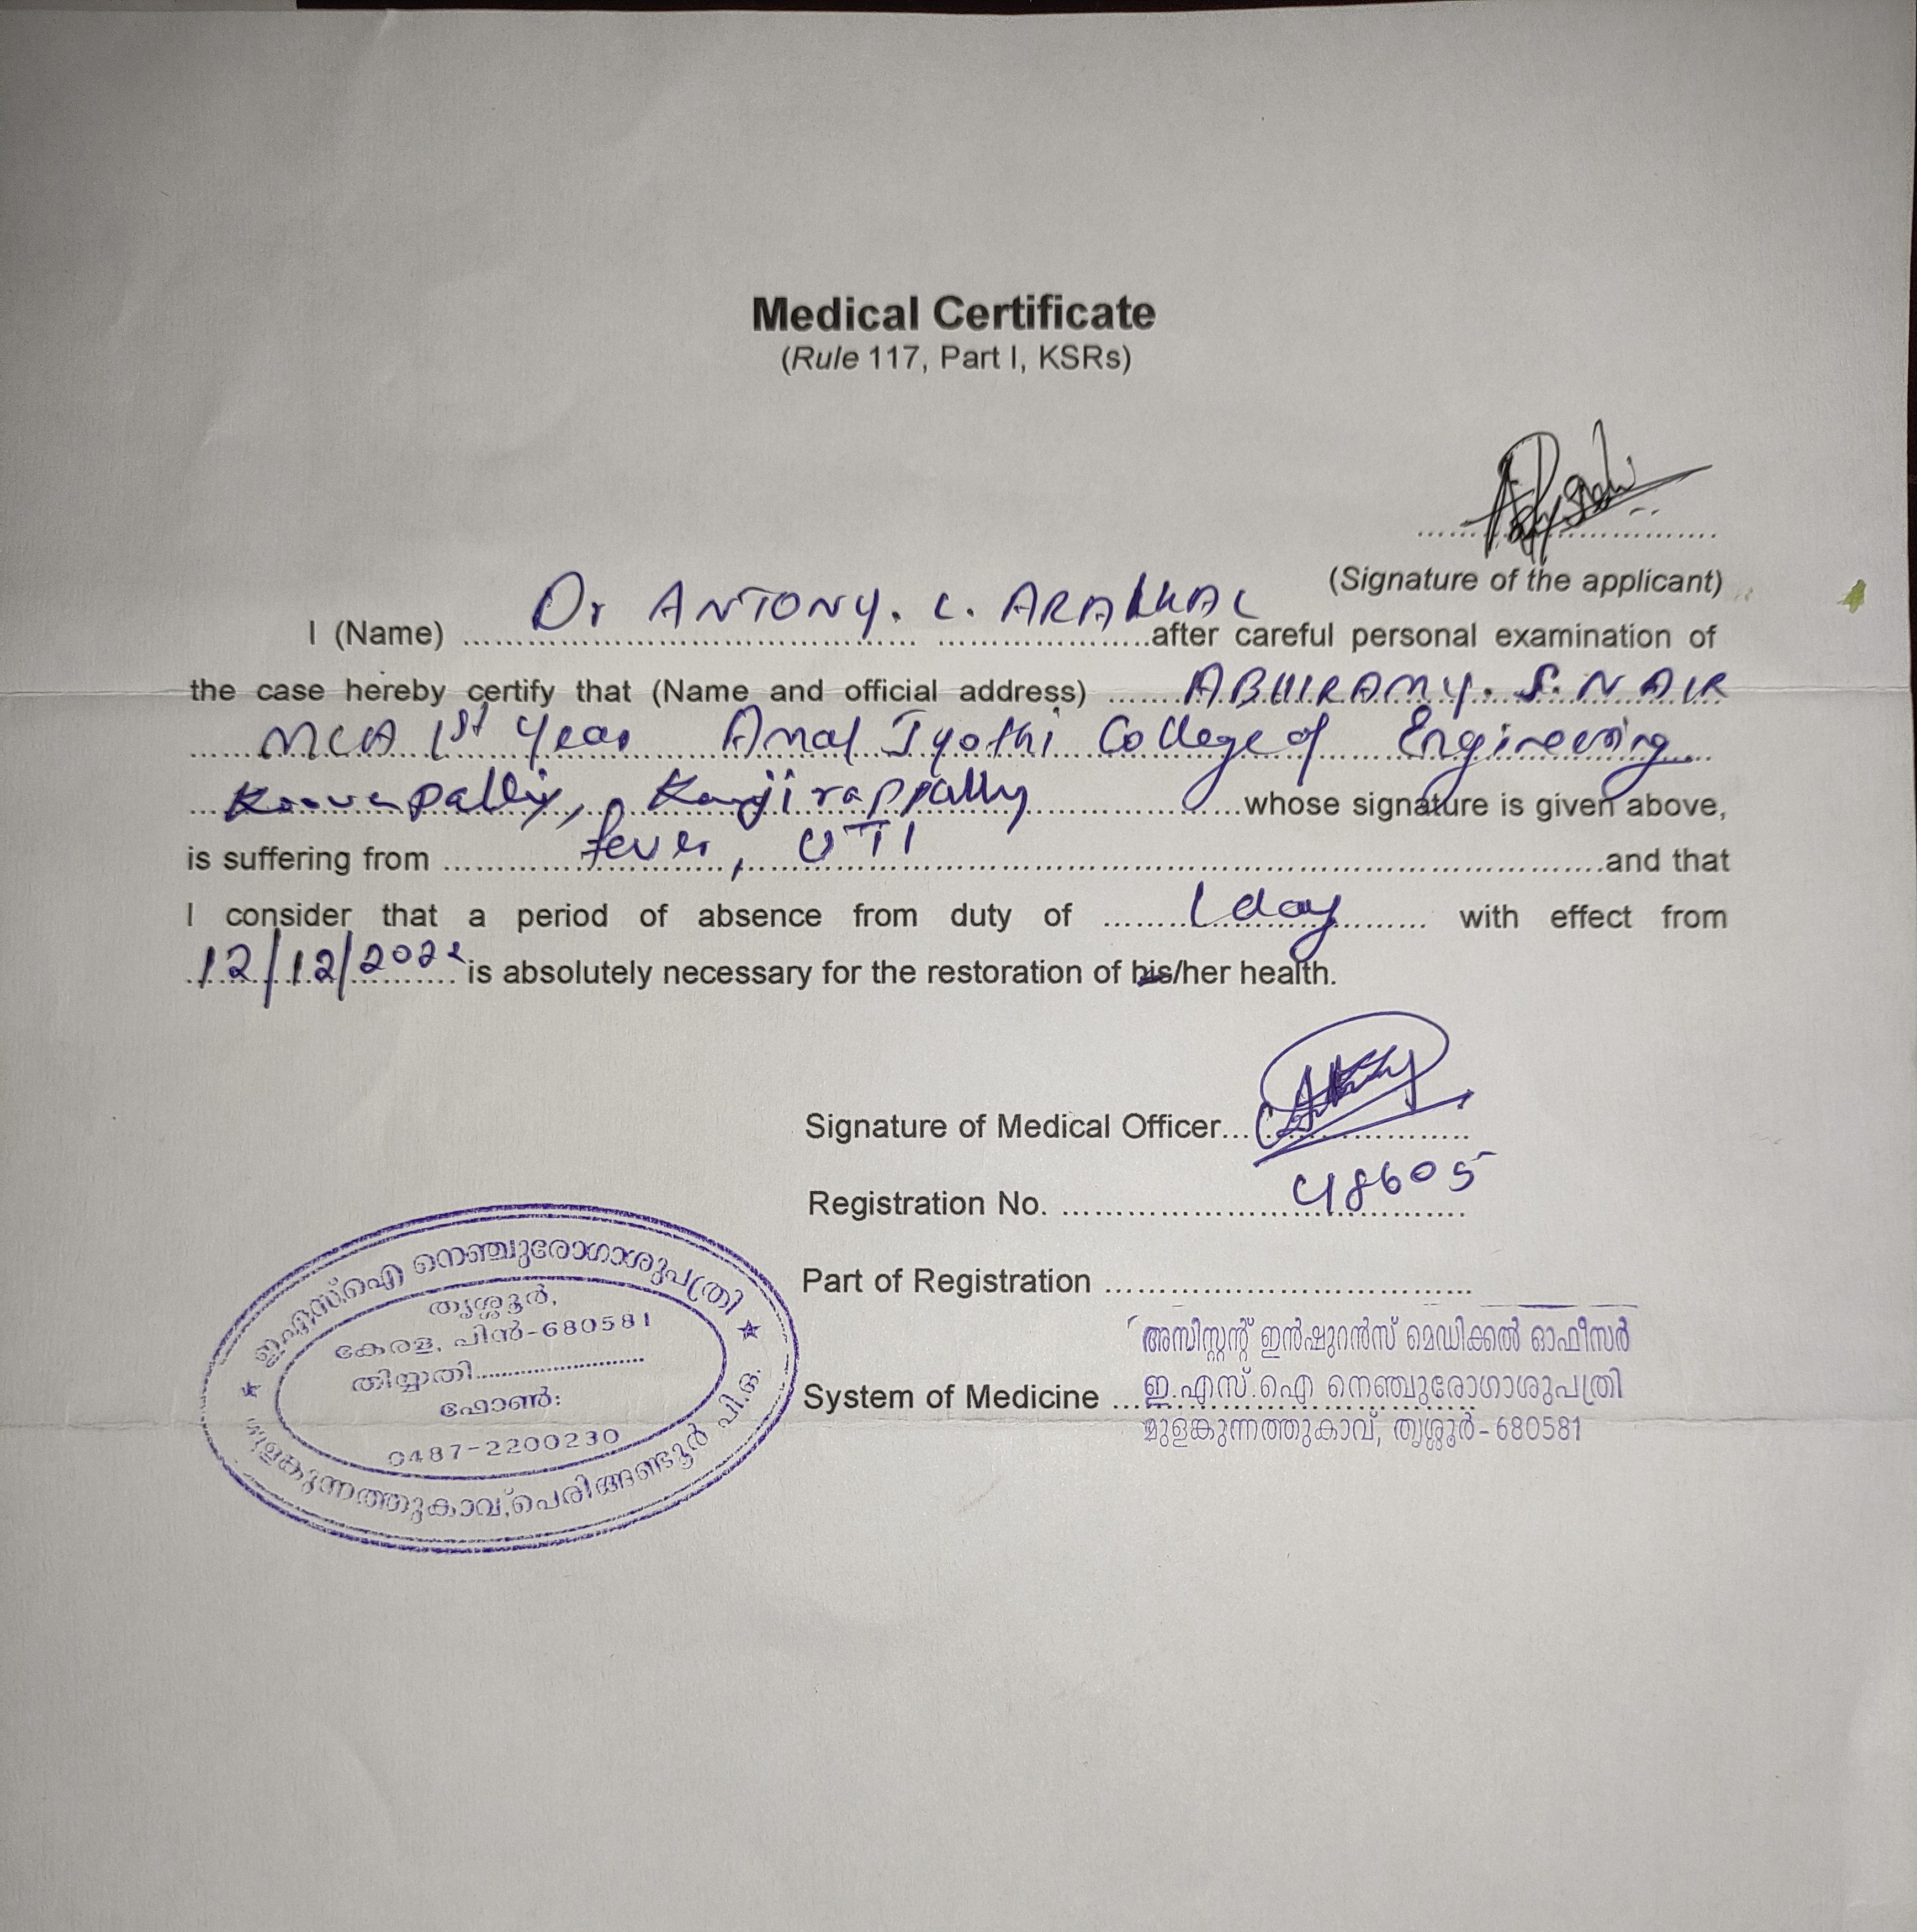 Medical Certificate
(Rule 117, Part I, KSRs)
(Signature of the applicant)
I (Name) Dr ANTONY. C. ARAKKAL after careful personal examination of
the case hereby certify that (Name and official address) ABHIRAMY. S. NAIR
MCA 1st Year Amal Jyothi College of Engineering
Koovapally, Kanjirappally whose signature is given above,
is suffering from fever, UTI and that
I consider that a period of absence from duty of 1 day with effect from
12/12/2022 is absolutely necessary for the restoration of his/her health.
Signature of Medical Officer
Registration No. 48605
Part of Registration
System of Medicine
അസിസ്റ്റന്റ് ഇൻഷുറൻസ് മെഡിക്കൽ ഓഫീസർ
ഇ.എസ്.ഐ നെഞ്ചുരോഗാശുപത്രി
മുളങ്കുന്നത്തുകാവ്, തൃശ്ശൂർ-680581
ഇ.എസ്.ഐ നെഞ്ചുരോഗാശുപത്രി
തൃശ്ശൂർ,
കേരള, പിൻ-680581
തിയ്യതി
ഫോൺ:
0487-2200230
മുളങ്കുന്നത്തുകാവ്, പെരിങ്ങണ്ടൂർ പി.ഒ.